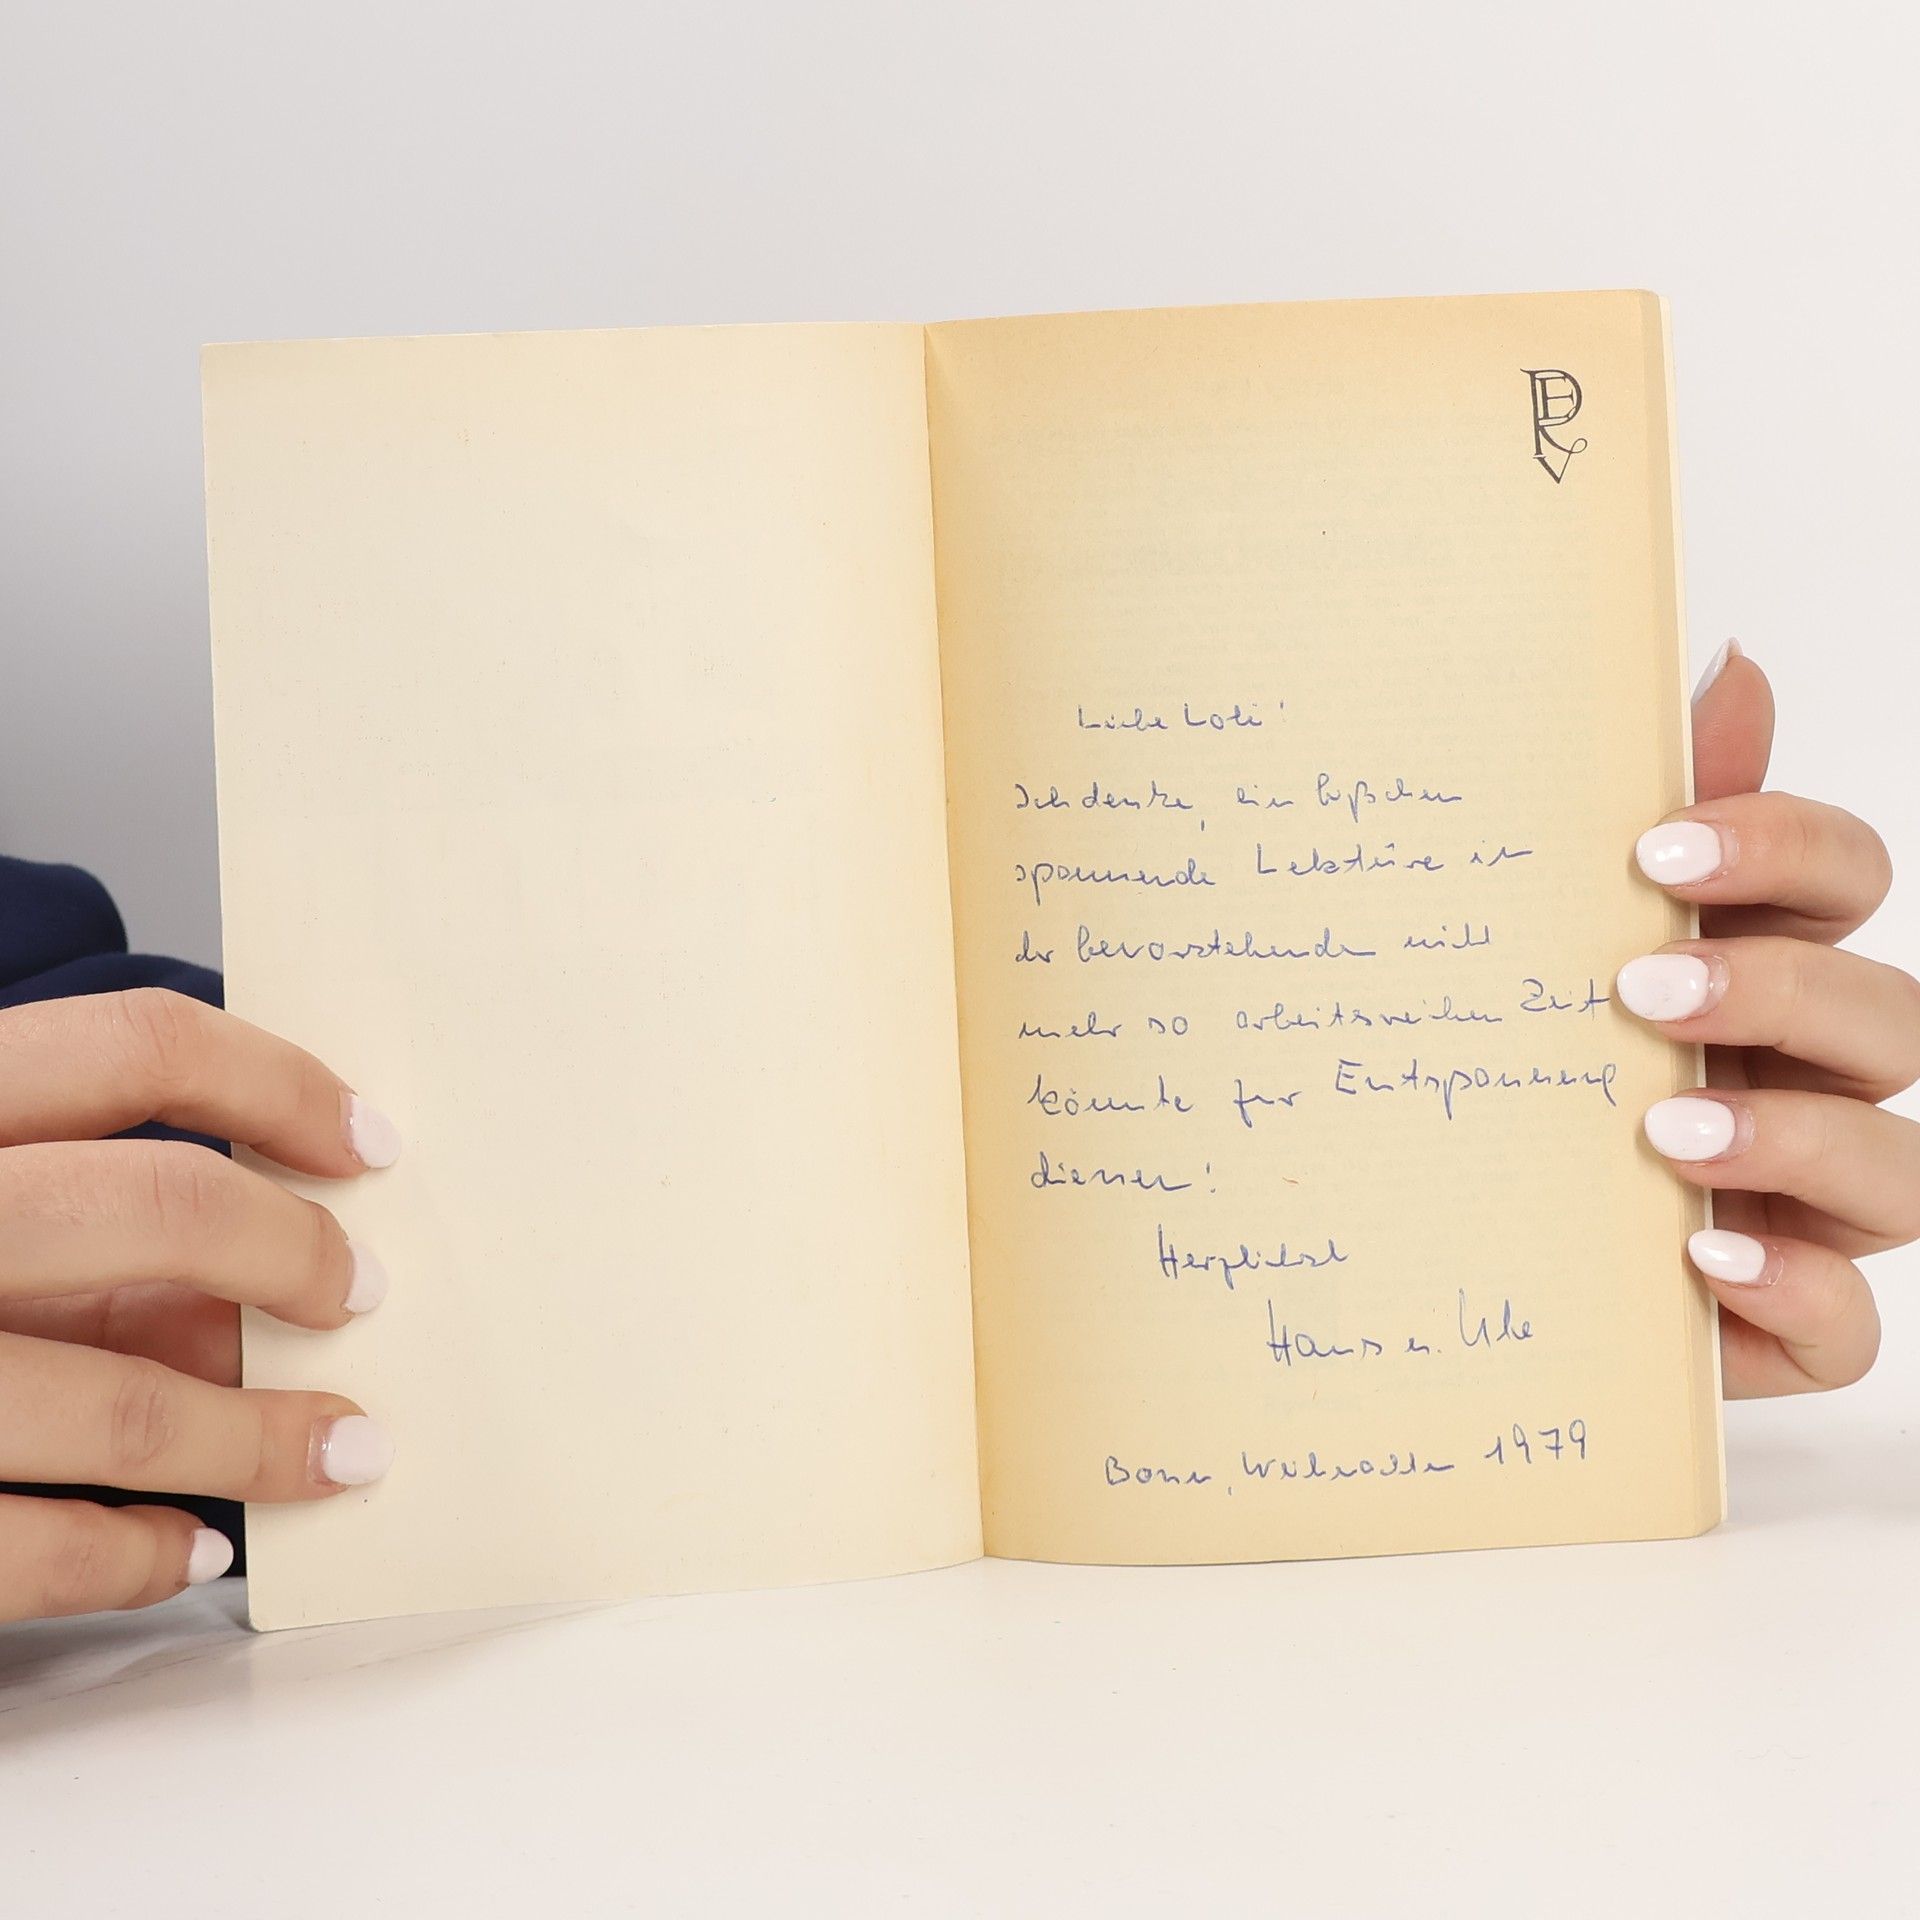 PERV
Liebe Loti!
Ich denke, ein bißchen
spannende Lektüre in
der bevorstehenden nicht
mehr so arbeitsreichen Zeit
könnte zur Entspannung
dienen!
Herzlichst
Hans u. Ube
Bonn, Weihnachten 1979